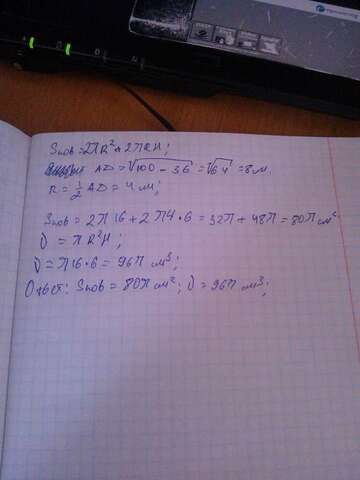 Sпов = 2πR² + 2πRH;
AD = √100 - 36 = √64 = 8 м.
R = 1/2 AD = 4 м;
Sпов = 2π16 + 2π4·6 = 32π + 48π = 80π см²
V = πR²H;
V = π16·6 = 96π см³;
Ответ: Sпов = 80π см²; V = 96π см³;